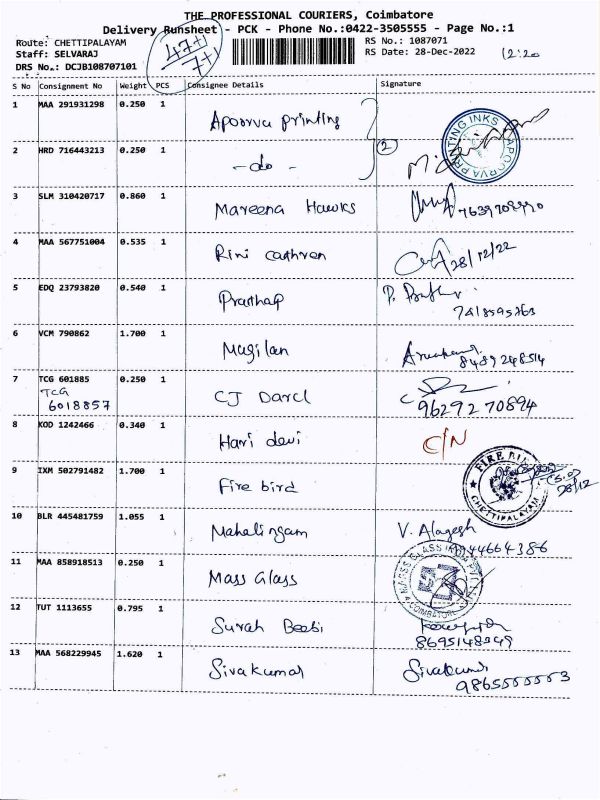 THE PROFESSIONAL COURIERS, Coimbatore
Delivery Runsheet - PCK - Phone No.:0422-3505555 - Page No.:1
Route: CHETTIPALAYAM
Staff: SELVARAJ
DRS No.: DCJB108707101
47+
7+
RS No.: 1087071
RS Date: 28-Dec-2022
12:20
S No Consignment No Weight PCS Consignee Details Signature
1 MAA 291931298 0.250 1 Apoorva printing
PRINTING INKS APOORVA
2 HRD 716443213 0.250 1 -do- 2
3 SLM 310420717 0.860 1 Mareena Hawks
4 MAA 567751004 0.535 1 Rini cathren 28/12/22
5 EDQ 23793820 0.540 1 Prathap
7418595763
6 VCM 790862 1.700 1 Magilan
8489248514
7 TCG 601885 0.250 1 CJ Darcl
TCG
6018857
9629270894
8 KOD 1242466 0.340 1 Hari devi C/N
9 IXM 502791482 1.700 1 Fire bird
FIRE
CHETTIPALAYAM
28/12
10 BLR 445481759 1.055 1 Mahalingam V. Alagesh
11 MAA 858918513 0.250 1 Mass Glass
COIMBATORE
12 TUT 1113655 0.795 1 Surah Beebi
13 MAA 568229945 1.620 1 Sivakumar Sivakumar